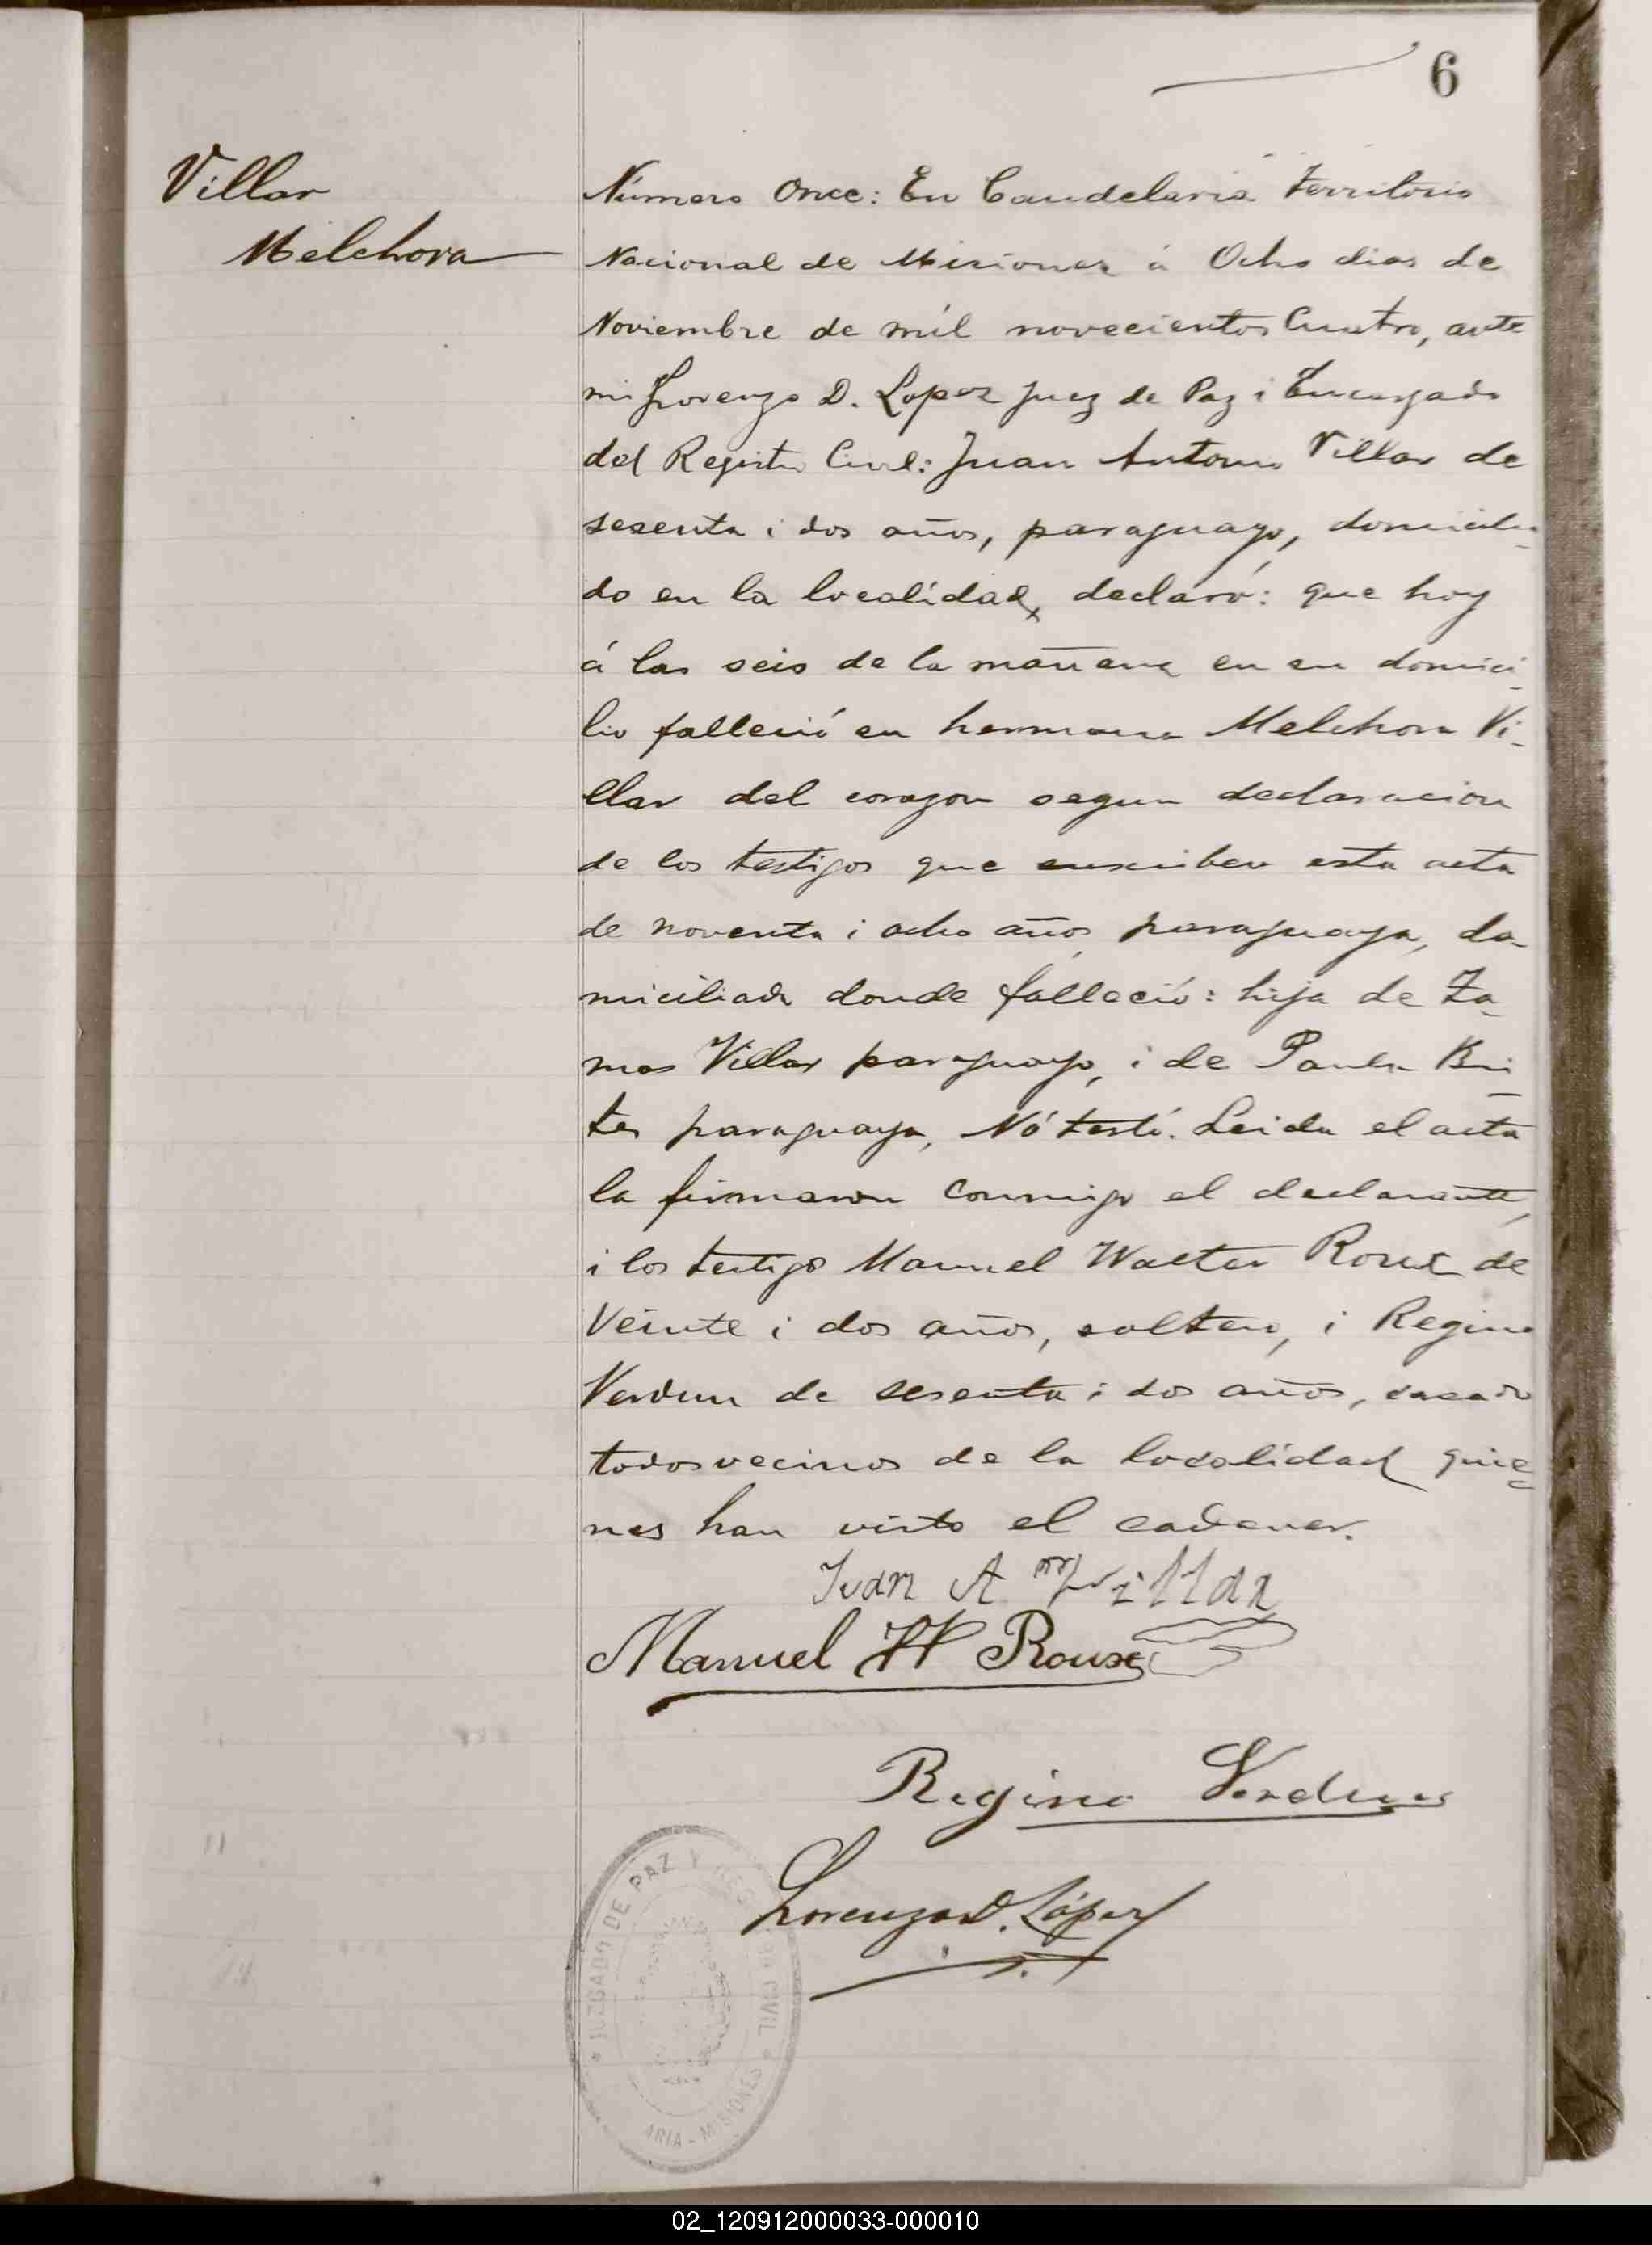 6
Villar
Melchora
Número Once: En Candelaria Territorio
Nacional de Misiones á Ocho dias de
Noviembre de mil novecientos Cuatro, ante
mi Lorenzo D. Lopez Juez de Paz i Encargado
del Registro Civil: Juan Antonio Villar de
sesenta i dos años, paraguayo, domicilia-
do en la localidad, declaró: que hoy
á las seis de la mañana en su domici-
lio falleció su hermana Melchora Vi-
llar del corazon segun declaracion
de los testigos que suscriben esta acta
de noventa i ocho años paraguaya, do-
miciliada donde falleció: hija de
mas Villar paraguayo, i de Paula Bri-
tes paraguaya, Nó testó. Leida el acta
la firmaron conmigo el declarante,
i los testigos Manuel Walter Roux de
Veinte i dos años, soltero, i Regino
Verdun de sesenta i dos años, casado
todos vecinos de la localidad quie-
nes han visto el cadaver.
Juan A Villar
Manuel W Roux
Regino Verdun
Lorenzo D. López
JUZGADO DE PAZ Y CIVIL
ARIA - MISIONES
02_120912000033-000010